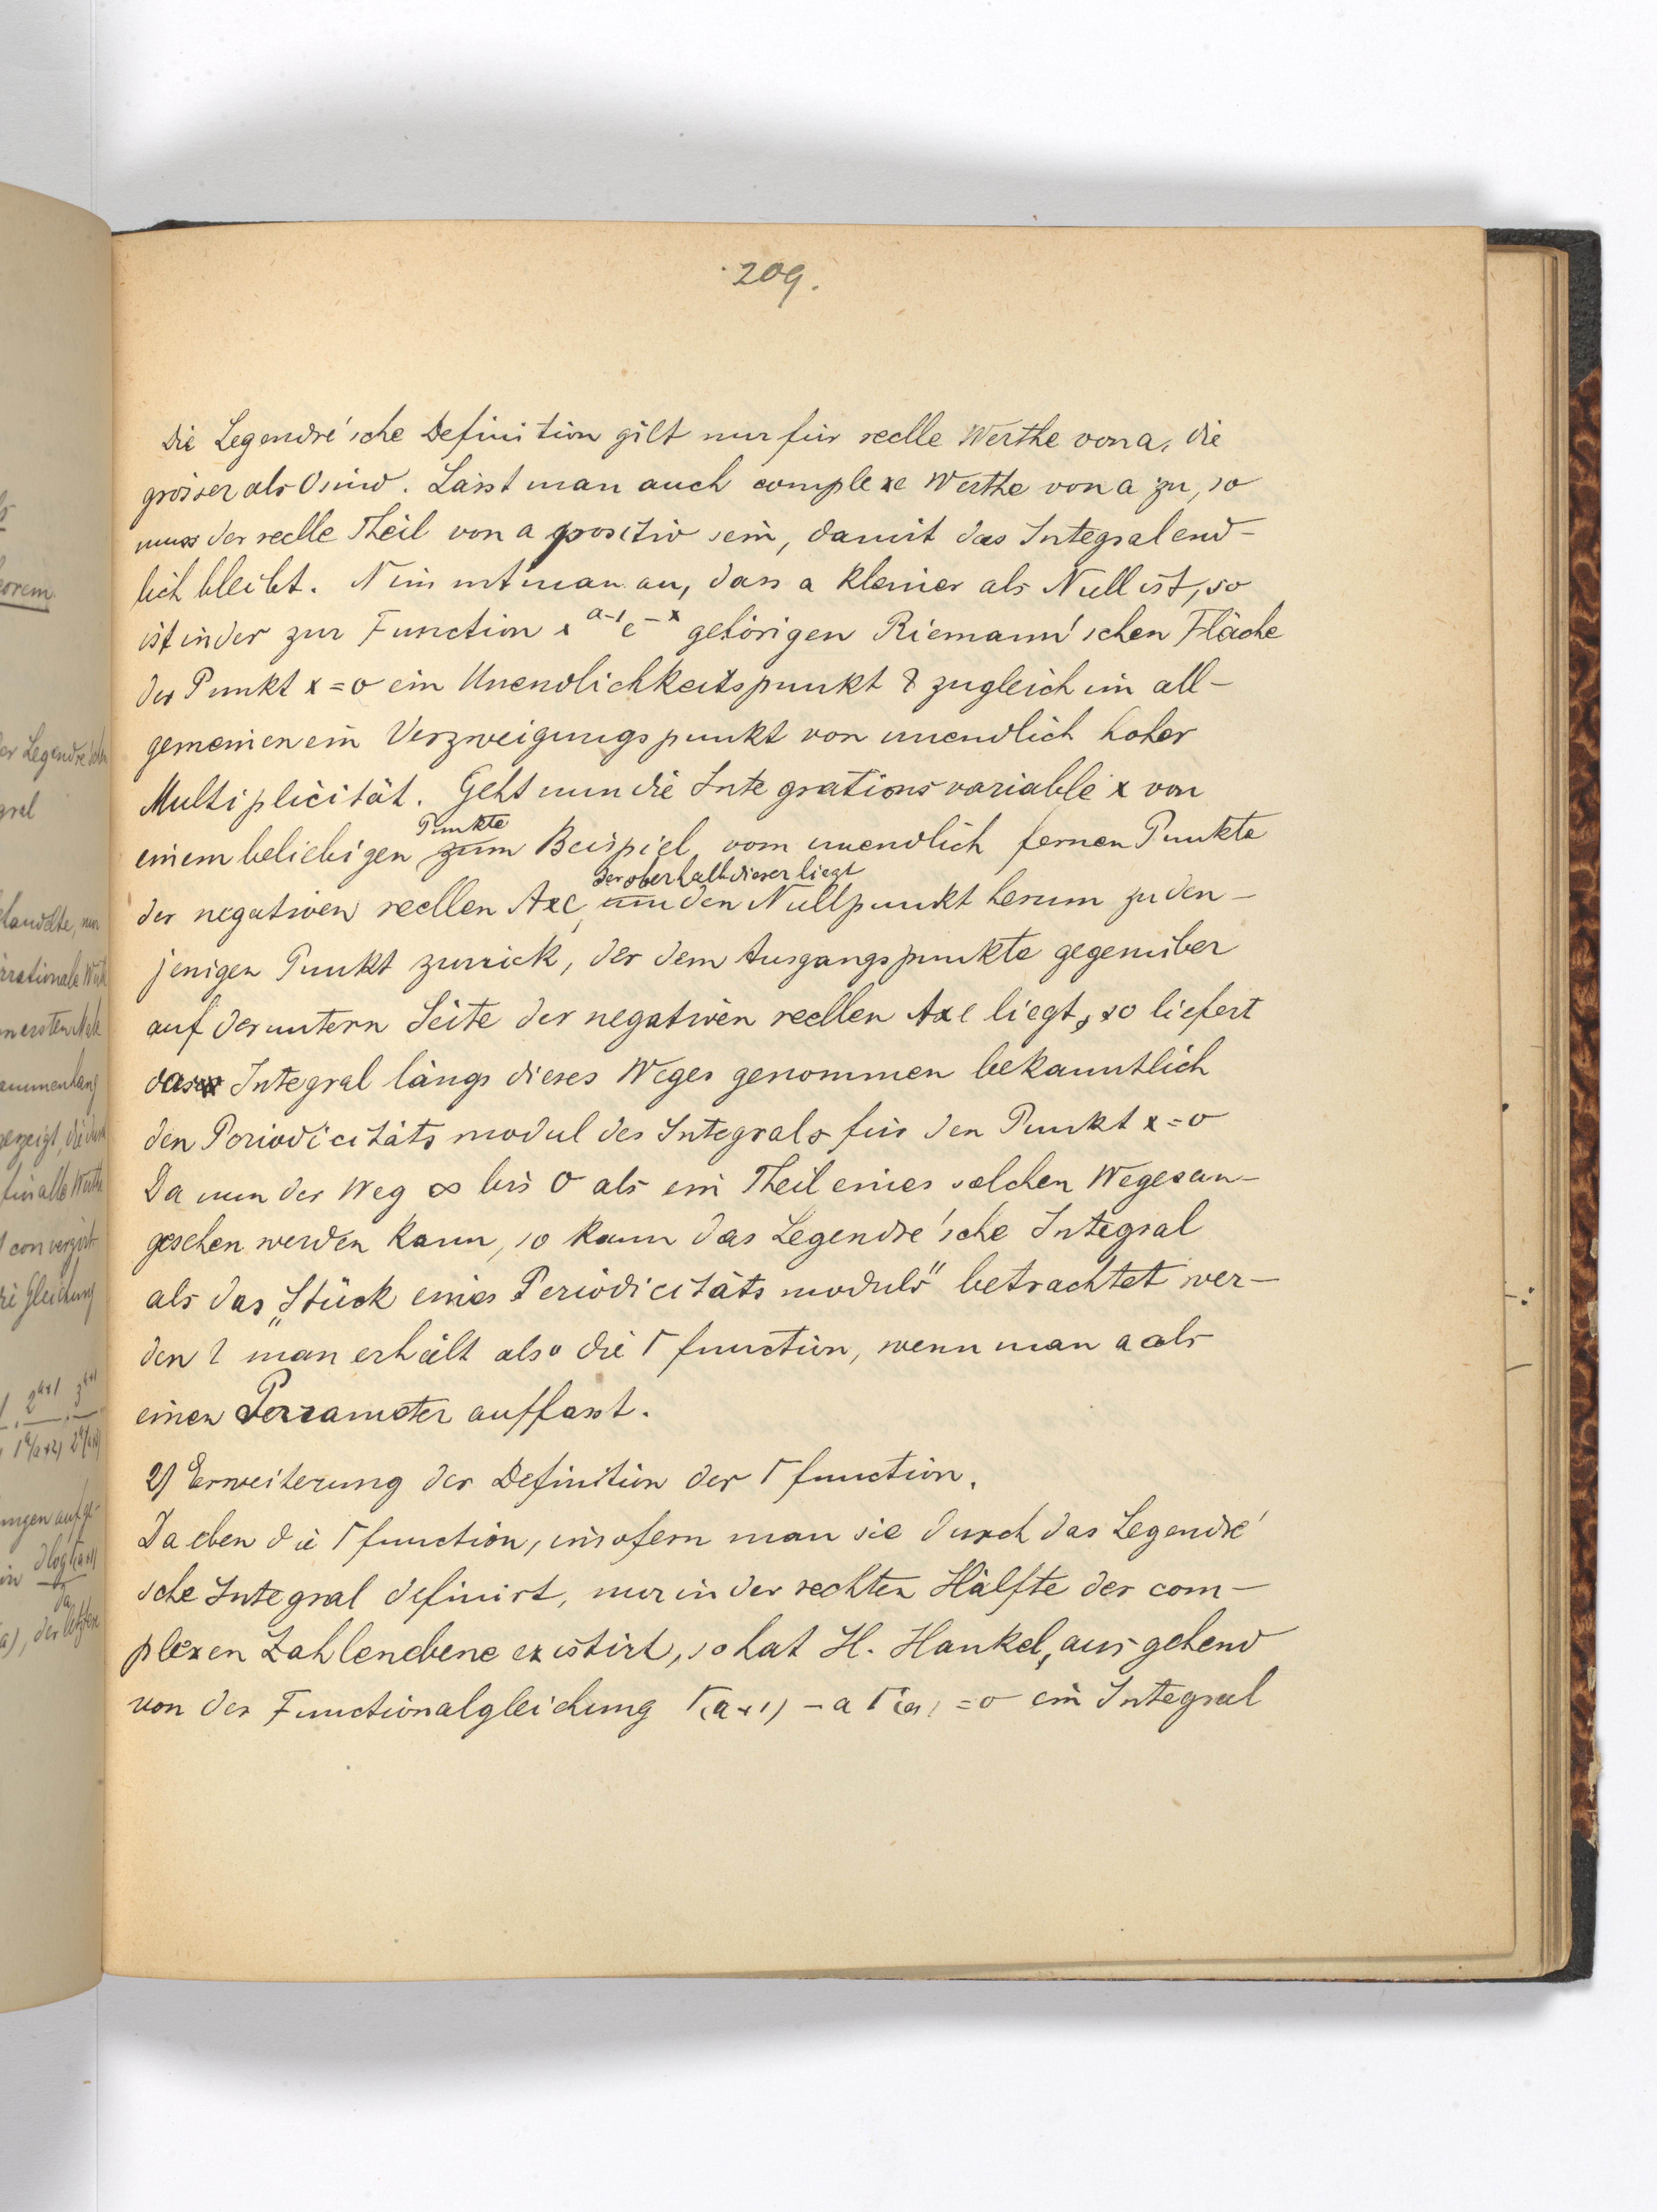 209.
Die Legendre'sche Definition gilt nur für reelle Werthe von a, die
grösser als 0 sind. Lässt man auch complexe Werthe von a zu, so
muss der reelle Theil von a positiv sein, damit das Integral end-
lich bleibt. Nimmt man an, dass a kleiner als Null ist, so
ist in der zur Function x^{a-1} e^{-x} gehörigen Riemann'schen Fläche
der Punkt x = 0 ein Unendlichkeitspunkt & zugleich im all-
gemeinen ein Verzweigungspunkt von unendlich hoher
Multiplicität. Geht nun die Integrationsvariable x von
Punkte
einem beliebigen zum Beispiel vom unendlich fernen Punkte
der oberhalb dieser liegt
der negativen reellen Axe, um den Nullpunkt herum zu den-
jenigen Punkt zurück, der dem Ausgangspunkte gegenüber
auf der untern Seite der negativen reellen Axe liegt, so liefert
das Integral längs dieses Weges genommen bekanntlich
den Periodicitätsmodul des Integrals für den Punkt x = 0
Da nun der Weg ∞ bis 0 als ein Theil eines solchen Weges an-
gesehen werden kann, so kann das Legendre'sche Integral
als das „Stück eines Periodicitätsmoduls" betrachtet wer-
den & man erhält also die Γ function, wenn man a als
einen Parrameter auffasst.
2) Erweiterung der Definition der Γ function.
Da eben die Γ function, insofern man sie durch das Legendre'
sche Integral definirt, nur in der rechten Hälfte der com-
plexen Zahlenebene existirt, so hat H. Hankel, ausgehend
von der Functionalgleichung Γ(a+1) - a Γ(a) = 0 ein Integral